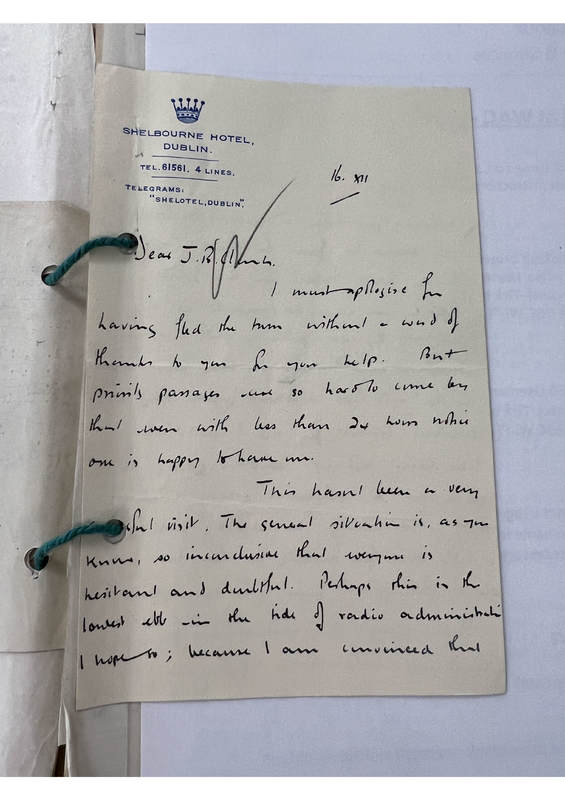 SHELBOURNE HOTEL,
DUBLIN.
TEL. 61561. 4 LINES.
TELEGRAMS:
"SHELOTEL, DUBLIN".
16. XII
Dear J.B.
I must apologise for
having fled the town without a word of
thanks to you for your help. But
priority passages are so hard to come by
that even with less than 24 hours notice
one is happy to have one.
This hasn't been a very
visit. The general situation is, as you
know, so inconclusive that everyone is
hesitant and doubtful. Perhaps this is the
lowest ebb in the tide of radio administrati
I hope so; because I am convinced that